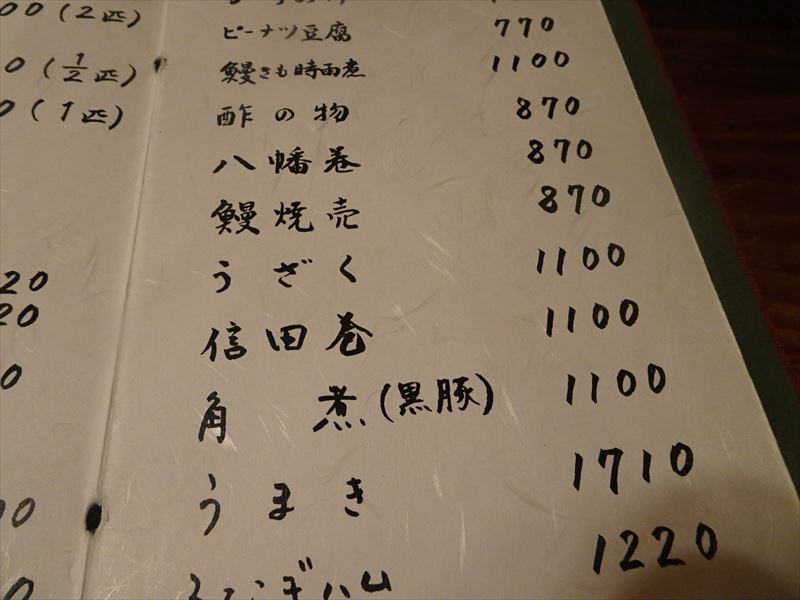 00 (2匹)
0 (1/2匹)
0 (1匹)
20
20
0
00
0
ピーナツ豆腐 770
鰻きも時雨煮 1100
酢の物 870
八幡巻 870
鰻焼売 870
うざく 1100
信田巻 1100
角煮(黒豚) 1100
うまき 1710
うなぎハム 1220